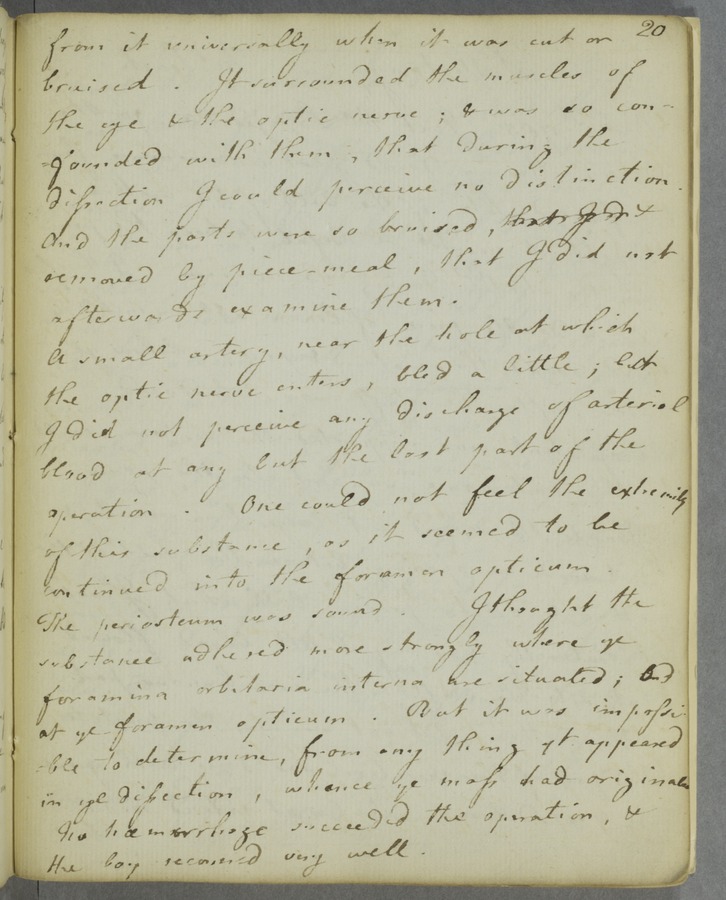 20
from it universally when it was cut or
bruised. It surrounded the muscles of
the eye & the optic nerve; & was so con-
-founded with them, that during the
dissection I could perceive no distinction.
And the parts were so bruised, that I d &
removed by piece-meal, that I did not
afterwards examine them.
A small artery, near the hole at which
the optic nerve enters, bled a little; but
I did not perceive any discharge of arterial
blood at any but the last part of the
operation. One could not feel the extremity
of this substance, as it seemed to be
continued into the foramen opticum.
The periosteum was sound. I thought the
substance adhered more strongly where ye
foramina orbitaria interna are situated; and
at ye foramen opticum. But it was impossi-
-ble to determine, from any thing yt appeared
in ye dissection, whence ye mass had originated
No hæmorrhage succeeded the operation, &
the boy recovered very well.